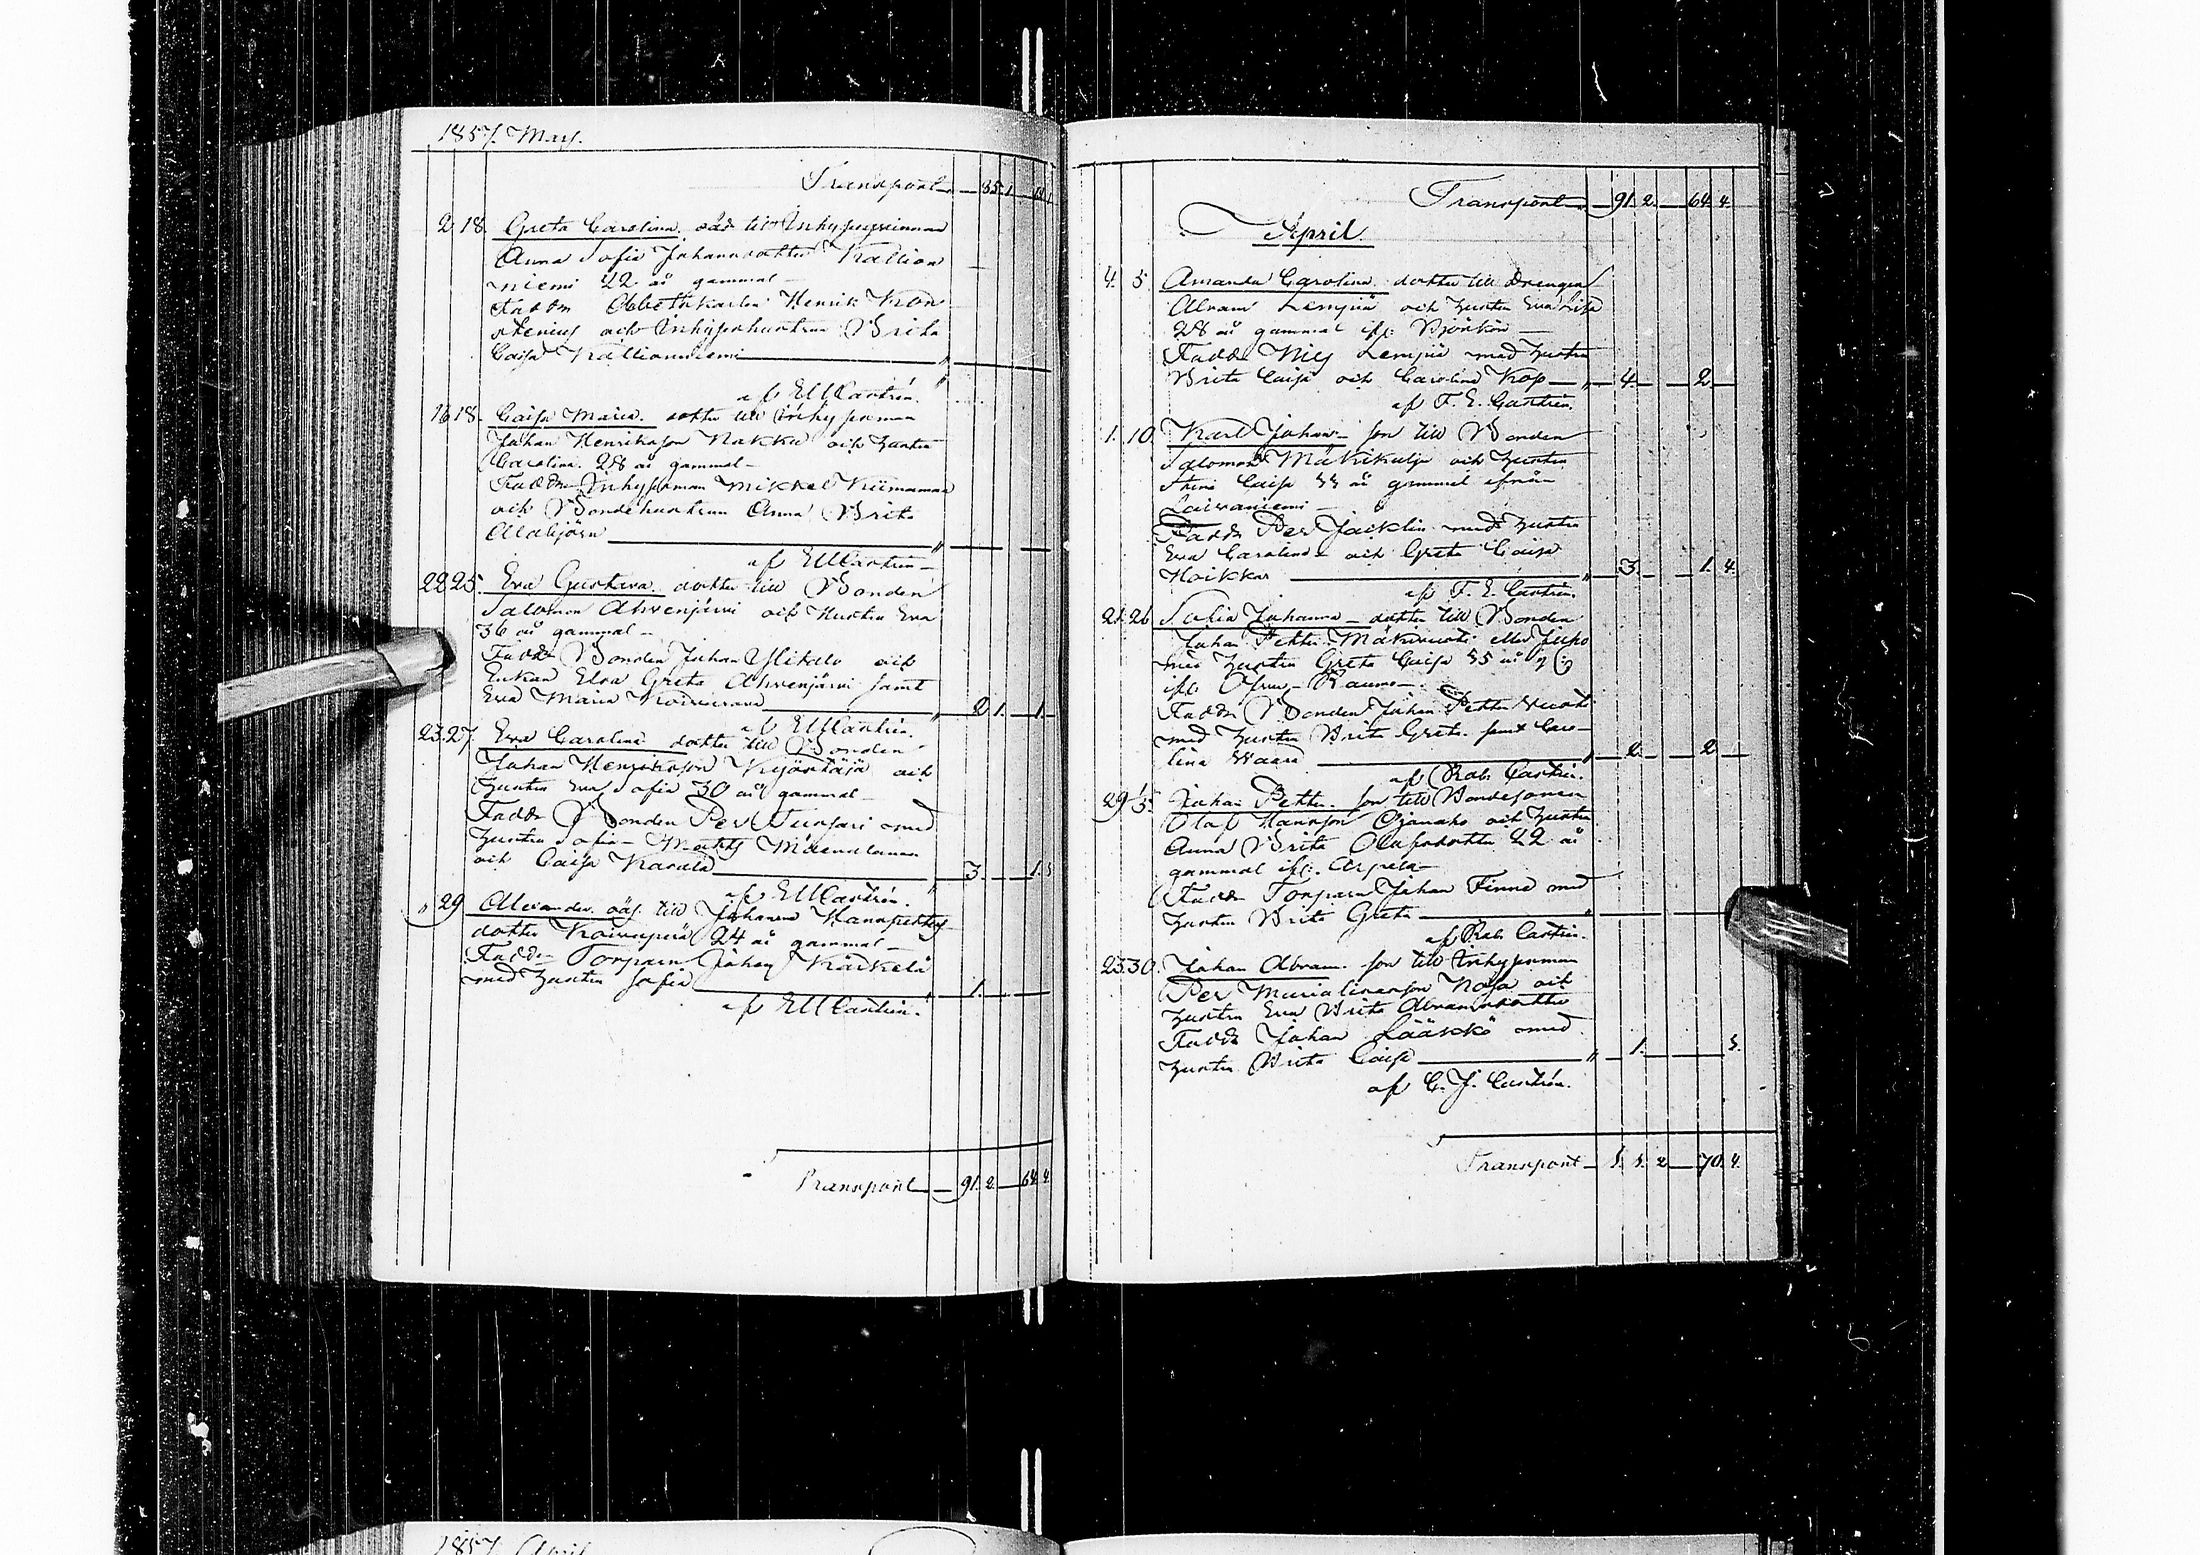 1857. Mars.
Transport 85. 1.
2 18. Greta Carolina. oäd. till Inhysqvinnan
Anna Sofia Johansdotter Kallion
niemi 22 år gammal
Faddr Henrik Kron
stenius och Inhyseshustrun Brita
Caisa Kallioniemi
af E M Castrén.
16 18. Caisa Maria. dotter till Inhysesman
Johan Henriksson Nakku och hustru
Carolina. 28 år gammal
Faddr Inhysesman Mikkel Kiimamaa
och Bondehustrun Anna Brita
Alabjörn
af E M Castrén
22 25. Eva Gustava. dotter till Bonden
Salomon Ahvenjärvi och Hustru Eva
36 år gammal
Faddr Bonden Johan Ylikalo och
Enkan Elsa Greta Ahvenjärvi samt
Eva Maria Koivuranta 2 1. 1.
af E M Castrén.
23. 27. Eva Carolina dotter till Bonden
Johan Henriksson och
hustru Eva Sofia 30 år gammal
Faddr Bonden Per med
hustru Sofia Matts
och Caisa Karala 3. 1. 3
af E M Castrén.
" 29 Alexander. oäs. till Johanna Hanspetters
dotter Koivuperä 24 år gammal
Faddr Torparn Johan Kärkelä
med hustru Sofia 1.
af E M Castrén.
Transport 91. 2. 64. 4.
Transport 91. 2. 64. 4.
April.
4. 5. Amanda Carolina. dotter till Drengen
Abram Lempiä och hustru Eva Lisa
28 år gammal ifr. Björkön
Faddr Nils Lempiä med hustru
Brita Caisa och Carolina Kop 4. 2.
af F. E. Castrén.
1. 10. Karl Johan. son till Bonden
Salomon Mäkikalje och hustru
Stina Caisa 33 år gammal ifrån
Laivaniemi
Faddr Per Jacklin med hustru
Eva Carolina och Greta Caisa
Hoikka 3. 1. 4.
af F. E. Castrén.
21. 26. Sofia Johanna dotter till Bonden
Johan Petter eller Juho
med hustru Greta Caisa 35 år g
ifr. Öfver Raumo
Faddr Bonden Johan Petter
med hustru Brita Greta samt Caro
lina Waara 2. 2
af Rob. Castrén.
29 3/5. Johan Petter. son till Bondesonen
Olof Hansson Ojanaho och hustru
Anna Brita Olofsdotter 22 år
gammal ifr. Arpela
Faddr Torparn Johan Finne med
hustru Brita Greta
af Rob. Castrén.
23. 30. Johan Abram. son till Inhysesman
Per och
hustru Eva Brita Abramsdotter
Faddr Johan Lääkkö med
hustru Brita Caisa 1. 3.
af C. J. Castrén.
Transport 1. 1. 2 70. 4.
1857. April